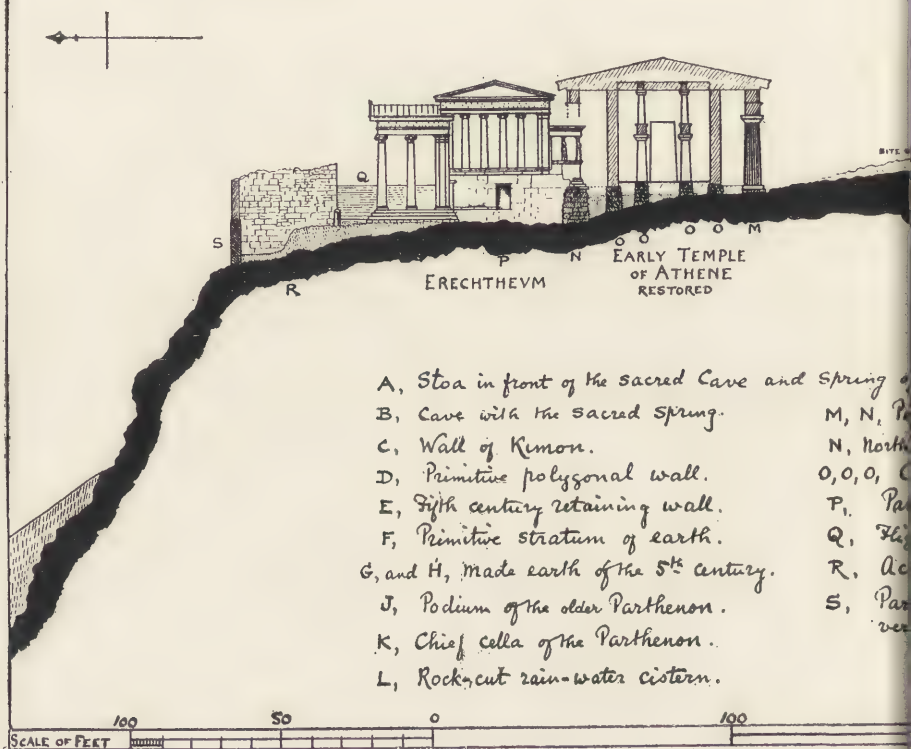 SITE
Q
S
R
P
N
O O
O O
M
ERECHTHEVM
EARLY TEMPLE
OF ATHENE
RESTORED
A, Stoa in front of the sacred Cave and Spring
B, Cave with the sacred Spring.
C, Wall of Kimon.
D, Primitive polygonal wall.
E, Fifth century retaining wall.
F, Primitive stratum of earth.
G, and H, Made earth of the 5th Century.
J, Podium of the older Parthenon.
K, Chief cella of the Parthenon.
L, Rock-cut rain-water cistern.
M, N,
N, North
O,O,O,
P,
Q,
R,
S,
100 50 0 100
SCALE OF FEET